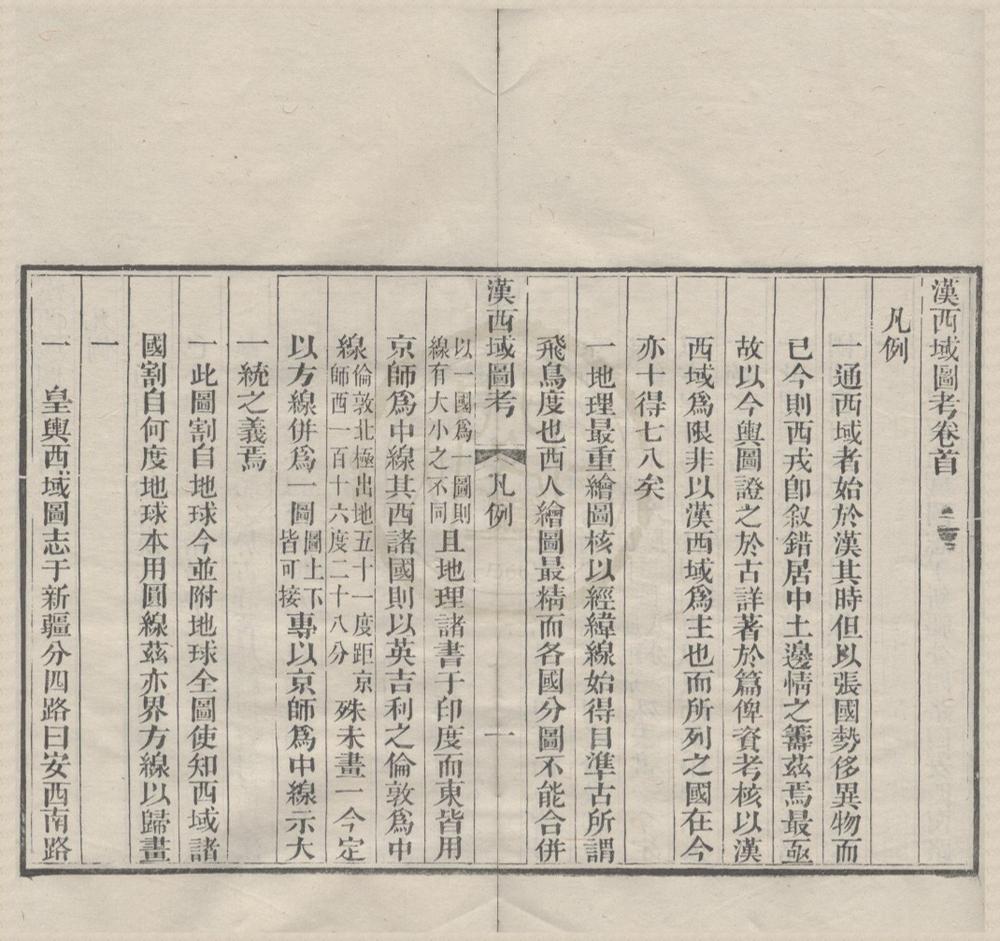 漢西域圖考卷首
凡例
一通西域者始於漢其時但以張國勢侈異物而
已今則西戎卽叙錯居中土邊情之籌茲焉最亟
故以今輿圖證之於古詳著於篇俾資考核以漢
西域爲限非以漢西域爲主也而所列之國在今
亦十得七八矣
一地理最重繪圖核以經緯線始得目準古所謂
飛鳥度也西人繪圖最精而各國分圖不能合併
漢西域圖考 凡例 一
以一國爲一圖則線有大小之不同且地理諸書于印度而東皆用
京師爲中線其西諸國則以英吉利之倫敦爲中
線倫敦北極出地五十一度距京師西一百十六度二十八分殊未畫一今定
以方線併爲一圖圖上下皆可接專以京師爲中線示大
一統之義焉
一此圖割自地球今並附地球全圖使知西域諸
國割自何度地球本用圓線茲亦界方線以歸畫
一
一皇輿西域圖志于新疆分四路曰安西南路